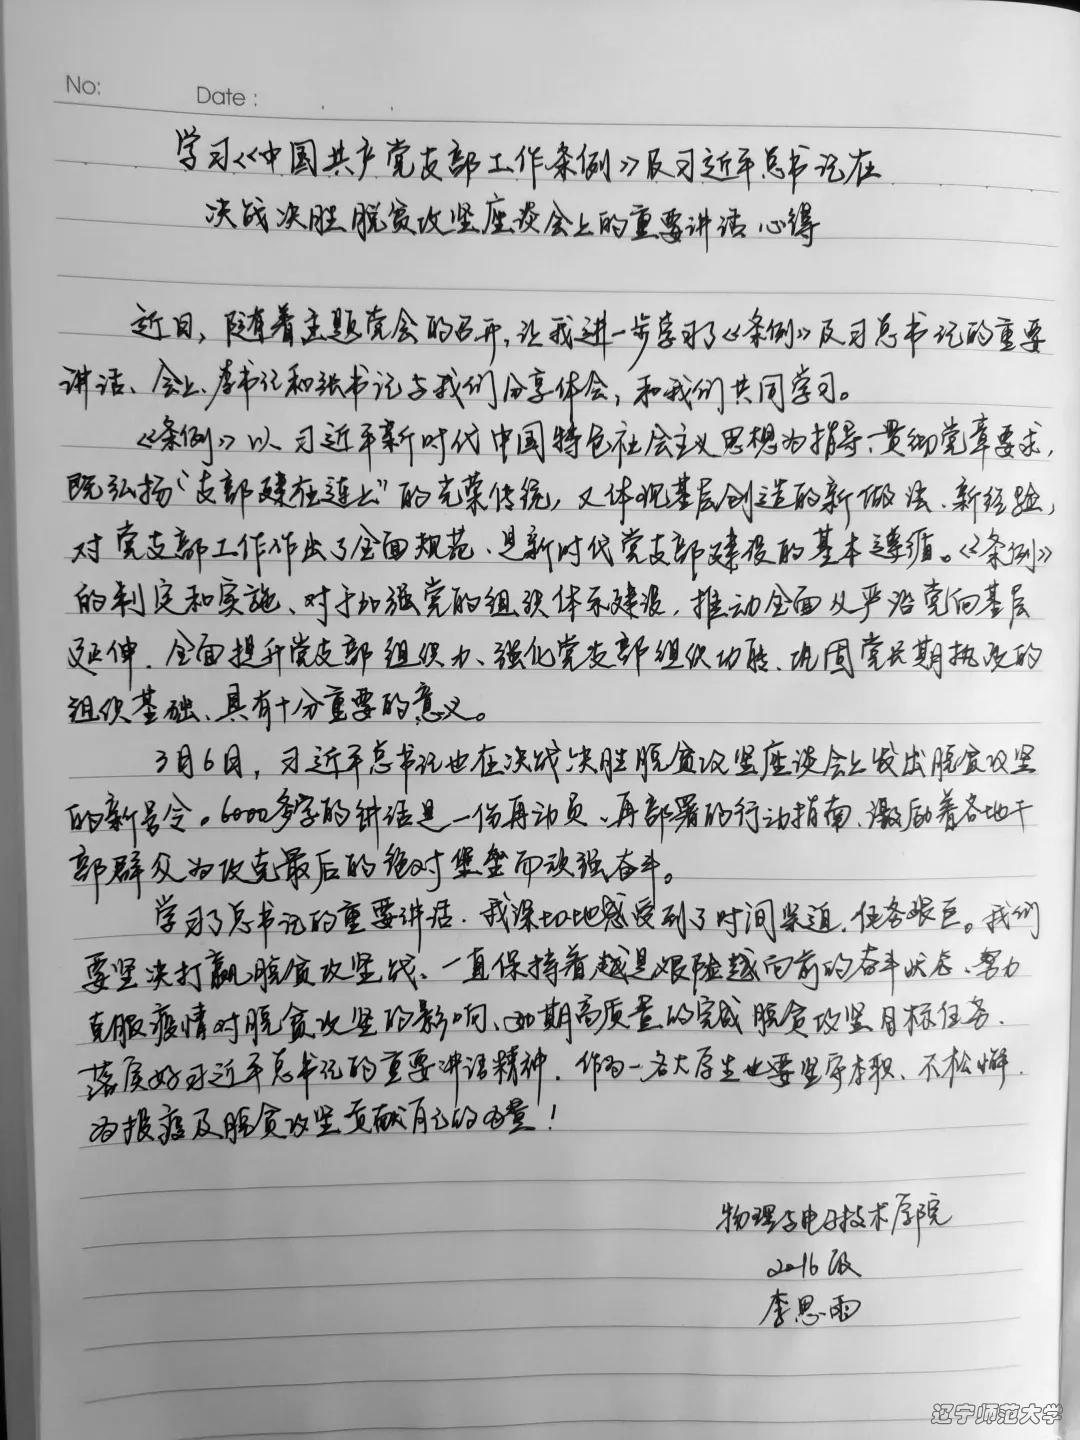 No:
Date:
学习《中国共产党支部工作条例》及习近平总书记在
决战决胜脱贫攻坚座谈会上的重要讲话心得
近日，随着主题党会的召开，让我进一步学习了《条例》及习总书记的重要
讲话、会上、李书记和张书记与我们分享体会，和我们共同学习。
《条例》以习近平新时代中国特色社会主义思想为指导、贯彻党章要求，
既弘扬“支部建在连上”的光荣传统，又体现基层创造的新做法、新经验，
对党支部工作作出了全面规范、是新时代党支部建设的基本遵循。《条例》
的制定和实施、对于加强党的组织体系建设，推动全面从严治党向基层
延伸、全面提升党支部组织力、强化党支部组织功能、巩固党长期执政的
组织基础、具有十分重要的意义。
3月6日，习近平总书记也在决战决胜脱贫攻坚座谈会上发出脱贫攻坚
的新号令。6000多字的讲话是一份再动员、再部署的行动指南、激励着各地干
部群众为攻克最后的绝对堡垒而顽强奋斗。
学习了总书记的重要讲话、我深切地感受到了时间紧迫，任务艰巨。我们
要坚决打赢脱贫攻坚战、一直保持着越是艰险越向前的奋斗状态、努力
克服疫情对脱贫攻坚的影响、如期高质量的完成脱贫攻坚目标任务、
落实好习近平总书记的重要讲话精神，作为一名大学生也要坚守本职、不松懈，
为抗疫及脱贫攻坚贡献自己的力量！
物理与电子技术学院
2016级
李思雨
辽宁师范大学